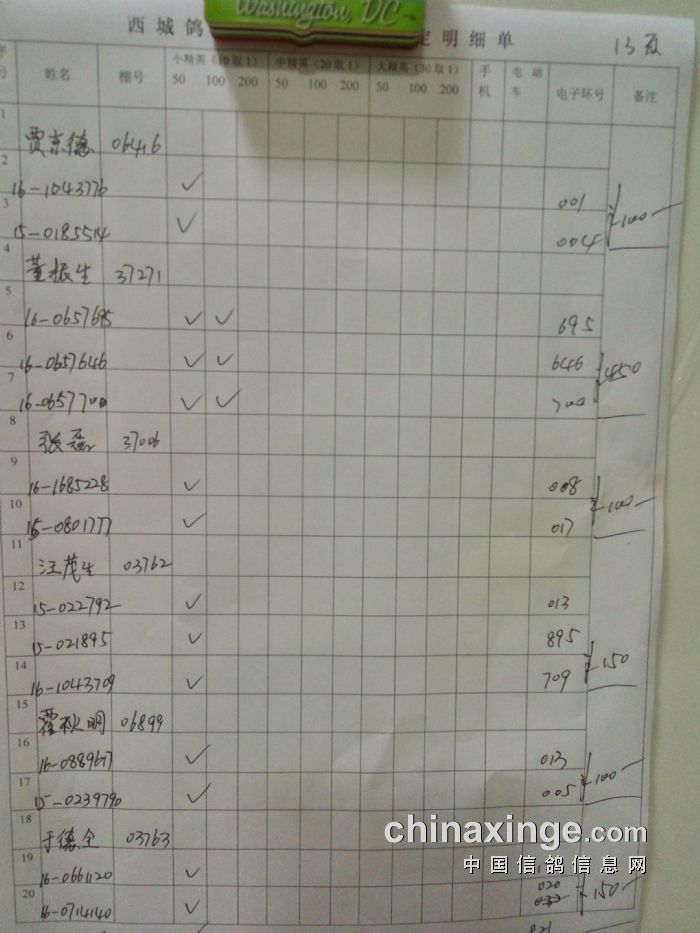 Washington, DC
西城鸽 定明细单 13页
序号 姓名 棚号 小精英(10取1) 中精英(20取1) 大精英(30取1) 手机 电动车 电子环号 备注
50 100 200 50 100 200 50 100 200
1 贾京德 06416
2 16-1043776 ✓ 001
3 15-0185514 ✓ 004 100
4 董振生 37271
5 16-0657695 ✓ ✓ 695
6 16-0657646 ✓ ✓ 646
7 16-0657700 ✓ ✓ 700 450
8 张磊 37006
9 16-1685228 ✓ 008
10 15-0801777 ✓ 017 100
11 汪茂生 03762
12 15-022792 ✓ 013
13 15-021895 ✓ 895
14 16-1043709 ✓ 709 150
15 霍秋明 06899
16 16-0889617 ✓ 013
17 15-0239790 ✓ 005 100
18 于德全 03763
19 16-0661120 ✓
20 16-0714140 ✓ 020 150
821
chinaxinge.com
中国信鸽信息网